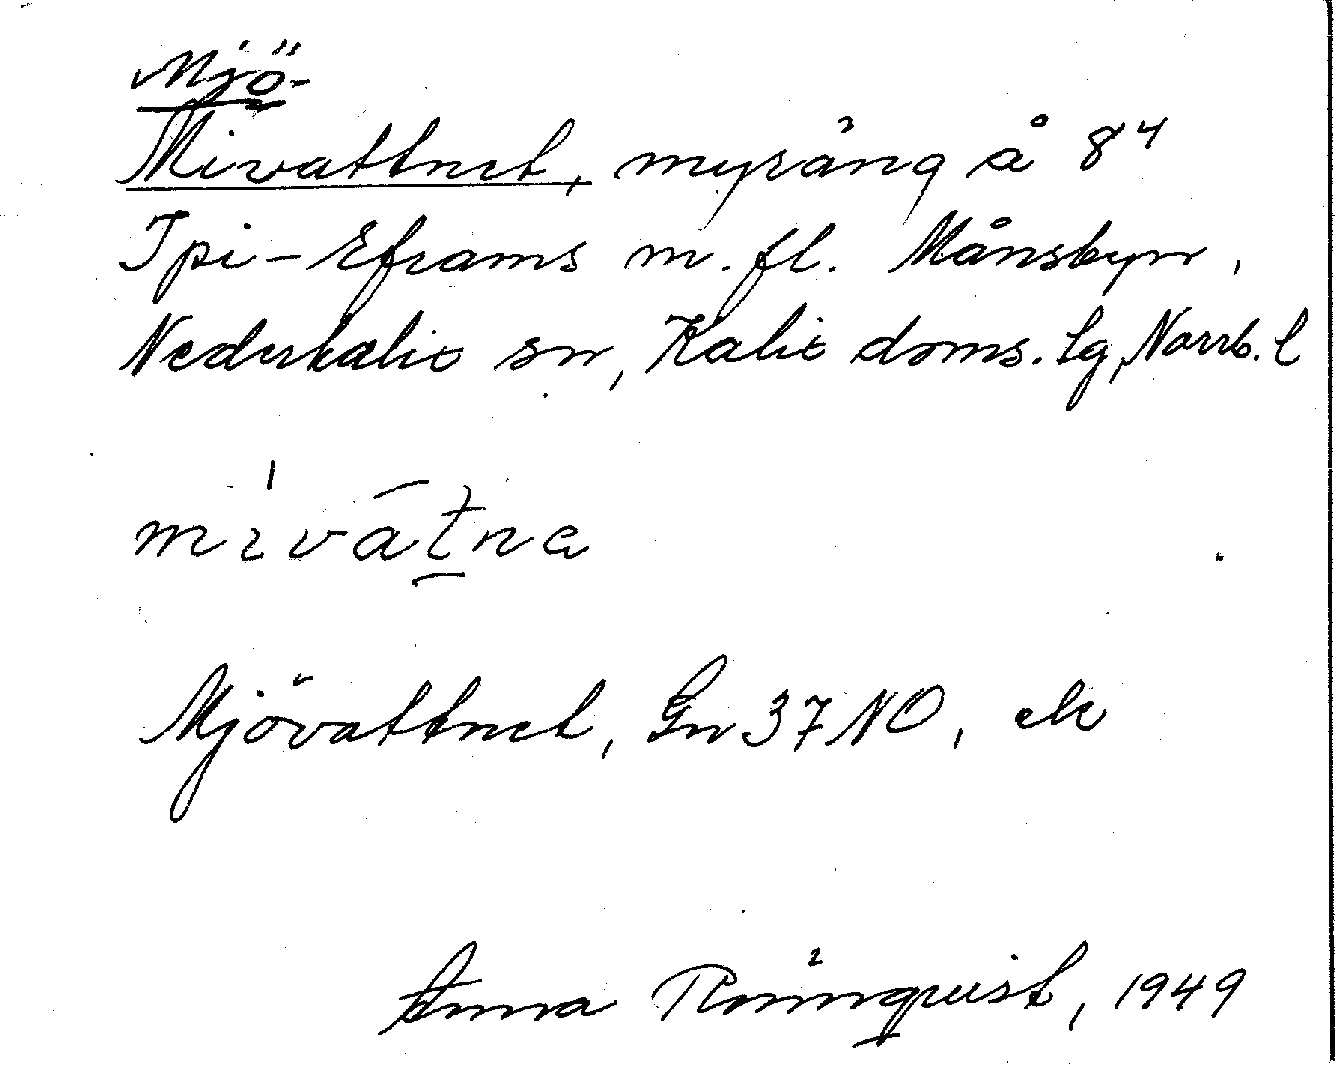 Mjö-
Mivattnet, myräng å 8⁴
Ipi-Eframs m.fl. Månsbyn,
Nederkalix sn, Kalix doms. lg, Norrb. l
mivátna
Mjövattnet, Gn 37 NO, ek
Anna Rönnquist, 1949